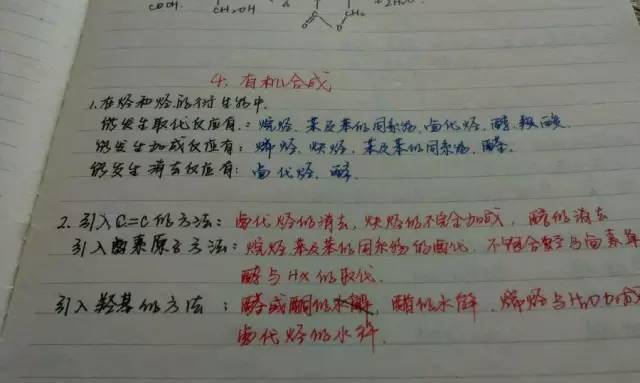 COOH
CH₂OH
CH₂
4. 有机合成
1. 在烃和烃的衍生物中.
能发生取代反应有：烷烃、苯及苯的同系物、卤代烃、醇、羧酸
能发生加成反应有：烯烃、炔烃、苯及苯的同系物、醛.
能发生消去反应有：卤代烃、醇.
2. 引入C=C的方法：卤代烃的消去，炔烃的不完全加成，醇的消去
引入卤素原子方法：烷烃、苯及苯的同系物的卤代、不饱和烃与卤素单
醇与HX的取代.
引入羟基的方法：醛或酮的 酯的水解、烯烃与H₂O加成
卤代烃的水解.